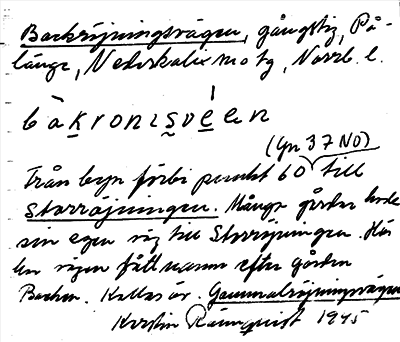 Backröjningsvägen, gångstig, På-
länge, Nederkalix mo tg, Norrb. l.
bàkronısvéen
(Gn 37 NO)
Från byn förbi punkt 60 till
Storröjningen. Många gårdar hade
sin egen väg till Storröjningen. Här
har vägen fått namn efter gården
Backen. Kallas äv. Gammalröjningsvägen
Kerstin Rännquist 1945